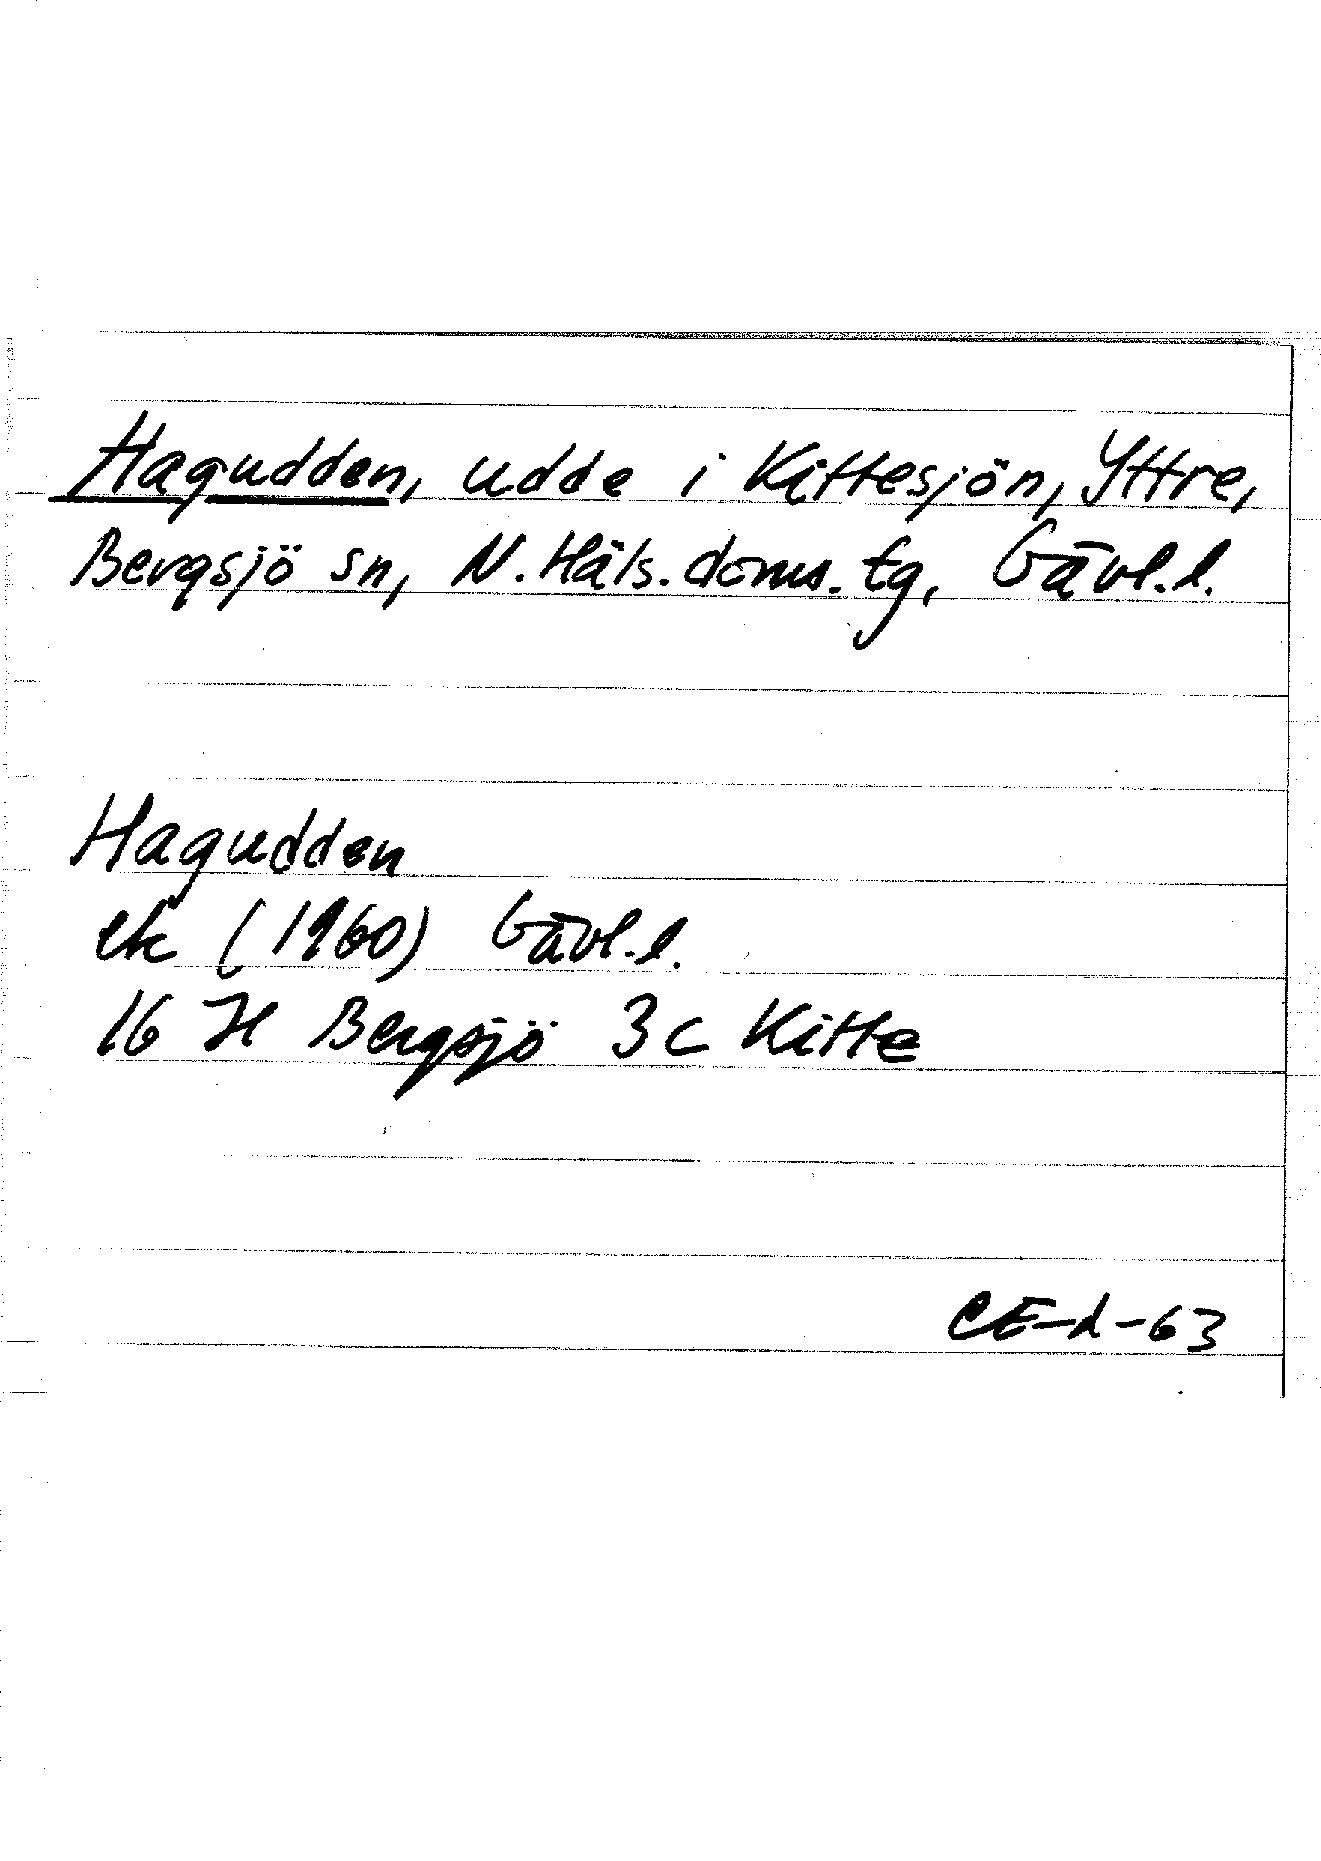 Hagudden, udde i Kittesjön, Yttre,
Bergsjö sn, N. Häls. doms. tg, Gävl.l.
Hagudden
ek (1960) Gävl.l.
16 H Bergsjö 3c Kitte
CE-d-63